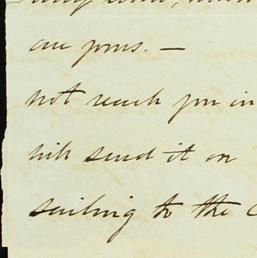 are yours. —
not reach you in
will send it on
sailing to the C